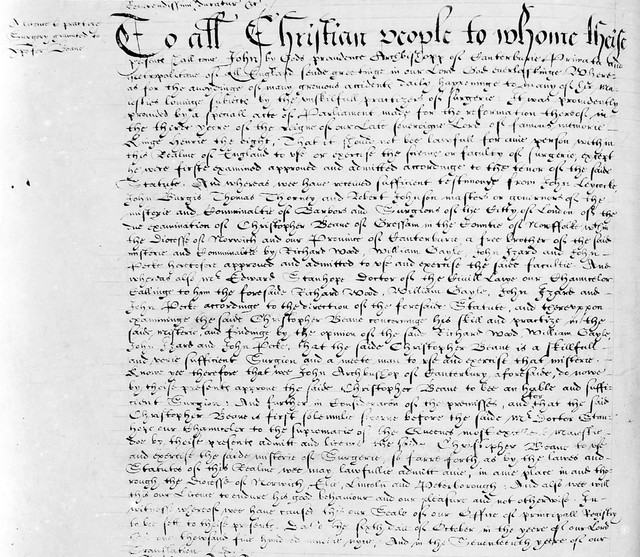 A licence to practice
Surgery graunted to
Xpofer Beane
To all Christian people to whome theise
presents shall come John by Gods providence Archbishopp of Canterburie Primate and
Metropolitane of all England sende greetinge in our Lord God everlastinge Where
as for the avoydinge of many grevous accidents daily happeninge to many of her Ma
iesties lovinge subiects by the unskilfull practizers of surgerie It was providently
provided by a speciall acte of Parliament made for the reformation thereof in
the thirde yeere of the reigne of our late sovereigne Lord of famous memorie
Kinge Henrie the Eight, That it should not bee lawfull for anie person within
this Realme of England to use or exercise the science or faculty of surgerie, except
he were firste examined approved and admitted accordinge to the tenor of the saide
Statute. And whereas we have receved sufficient testimony from John
John Burgis Thomas Thorney and Robert Johnson masters or governors of the
misterie and Comminaltie of Barbors and Surgeons of the Citty of London of the
due examination of Christopher Beane of Gressam in the Comtie of Norffolk within
the Diocesse of Norwich and our Province of Canterburie a free brother of the said
misterie and Comminaltie by Richard Wood, William Gayle, John Izard and John
Pecke heretofore approved and admitted to use and exercise the saide facultie And
whereas also Mr Edward Stanhope Doctor of the Civill Lawe our Chauncelor
callinge to him the foresaide Richard Wood William Gayle, John Izard and
John Pecke accordinge to the direction of the foresaide Statute, and thereuppon
examininge the saide Christopher Beane concerninge his skill and practize in the
saide misterie, and findinge by the opinion of the said Richard Wood William Gayle,
John Izard and John Pecke, that the saide Christopher Beane is a skillfull
and verie sufficient Surgeon and a meete man to use and exercise that misterie.
Knowe yee therefore that we John Archbishop of Canterbury aforesaide, do nowe
by theise presents approve the saide Christopher Beane to bee an hable and suffi
cient Surgion: And further in consideracon of the premisses, and for that the said
Christopher Beane is first solemnlie sworne before the saide Mr Doctor Stan
hope our Chauncelor to the supremacie of the Queenes most excelent Maiestie
doe by theise presents admitt and licence the saide Christopher Beane to use
and exercise the saide misterie of Surgerie, so farre forth as by the lawes and
Statutes of this Realme wee may lawfullie admitt anie, in anie place in and tho
rough the Diocesse of Norwich, Elie, Lincoln and Peterborough. And also we will
this our Licence to endure his good behaviour and our pleasure and not otherwise. In
witnesse whereof we have caused the Seale of our Office of principall Registry
to be sett to these presents. Dated the sixth daie of October, in the yeere of our Lord
one thowsand five hundred ninetie nyne, And in the Seventeenth yeere of our
Translation